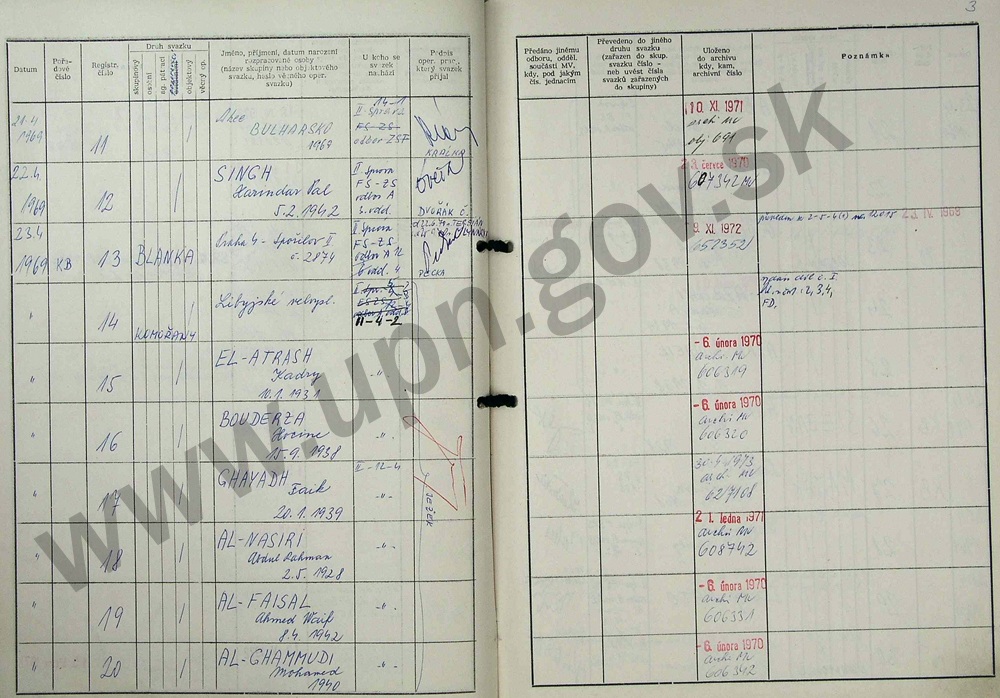 3
Datum
Pořa-
dové
číslo
Registr.
číslo
Druh svazku
skupinový
osobní
sg. pátrací
objektový
věcný op.
Jméno, příjmení, datum narození
rozpracované osoby
(název skupiny nebo objektového
svazku, heslo věcného oper.
svazku)
U koho se
svazek
nachází
Podpis
oper. prac.,
který svazek
přijal
Předáno jinému
odboru, odděl.
součásti MV,
kdy, pod jakým
čís. jednacím
Převedeno do jiného
druhu svazku
(zařazen do skup.
svazku číslo -
neb uvést čísla
svazků zařazených
do skupiny)
Uloženo
do archivu
kdy, kam,
archivní číslo
Poznámka
21.4
1969
11
Akce
BULHARSKO
1969
14-1
II. Správa
FS-ZS
odbor ZSF
KRÁLNA
10. XI. 1971
archi MV
obj 691
22.4
1969
12
SINGH
Harindar Pal
5.2.1942
II Správa
FS-ZS
odbor A
3. odd.
DVOŘÁK Č.
3. července 1970
607342 MV
23.4
1969
KB
13
BLANKA
Praha 4 - Spořilov II
č. 2874
II Správa
FS-ZS
odbor A 12
6 odd. 4
PECKA
9. XI. 1972
652352
23. IV. 1968
"
14
KOMOŘANY
Libyjské velvysl.
II-4-2
vydán díl č. I
2, 3, 4,
FD,
"
15
EL-ATRASH
Kadry
10.1.1931
-"-
- 6. února 1970
archi MV
606319
"
16
BOUDERZA
Hocine
15.9.1938
-"-
- 6. února 1970
archi MV
606320
"
17
GHAYADH
Faik
20.1.1939
II-12-4
-"-
JEŽEK
30.4.1973
archi MV
627108
"
18
AL-NASIRI
Abdul Rahman
2.5.1928
-"-
21. ledna 1971
archi MV
608742
"
19
AL-FAISAL
Ahmed Waif
8.4 1942
-"-
- 6. února 1970
archi MV
606331
"
20
AL-GHAMMUDI
Mohamed
1940
-"-
- 6. února 1970
archi MV
606342
www.upn.gov.sk